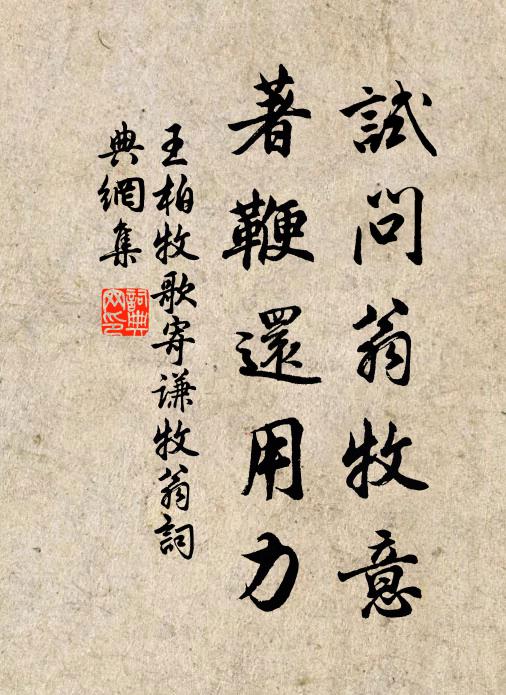 試問翁牧意
著鞭還用力
王柏牧歌寄谦牧翁詞
典網集
詞典网印